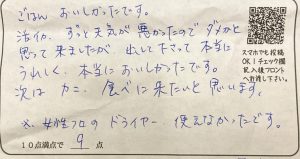 ごはん おいしかったです。
活イカ、ずっと天気が悪かったのでダメかと
思って来ましたが、出して下さって本当に
うれしく、本当においしかったです。
次は カニ、食べに来たいと思います。
※ 女性フロのドライヤー、使えなかったです。
スマホでも投稿
OK！チェック欄
記入後フロント
へお渡し下さい。
１０点満点で 9 点